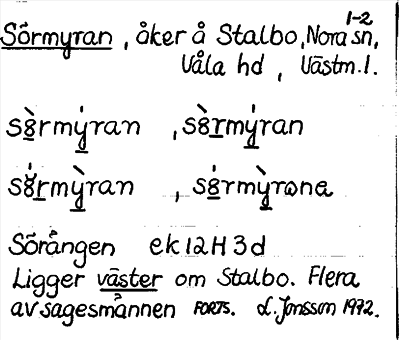 1-2
Sörmyran, åker å Stalbo, Nora sn,
Våla hd, Västm. l.
sö̀rmýran , sö̀rmýran
sö́rmỳran , sö́rmỳrana
Sörängen ek 12H 3d
Ligger väster om Stalbo. Flera
av sagesmännen FORTS. L. Jonsson 1972.